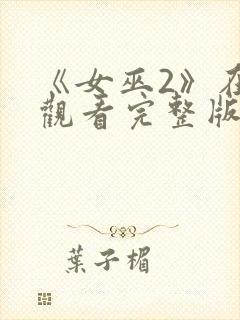 《女巫2》在
觀看完整版
葉子楣